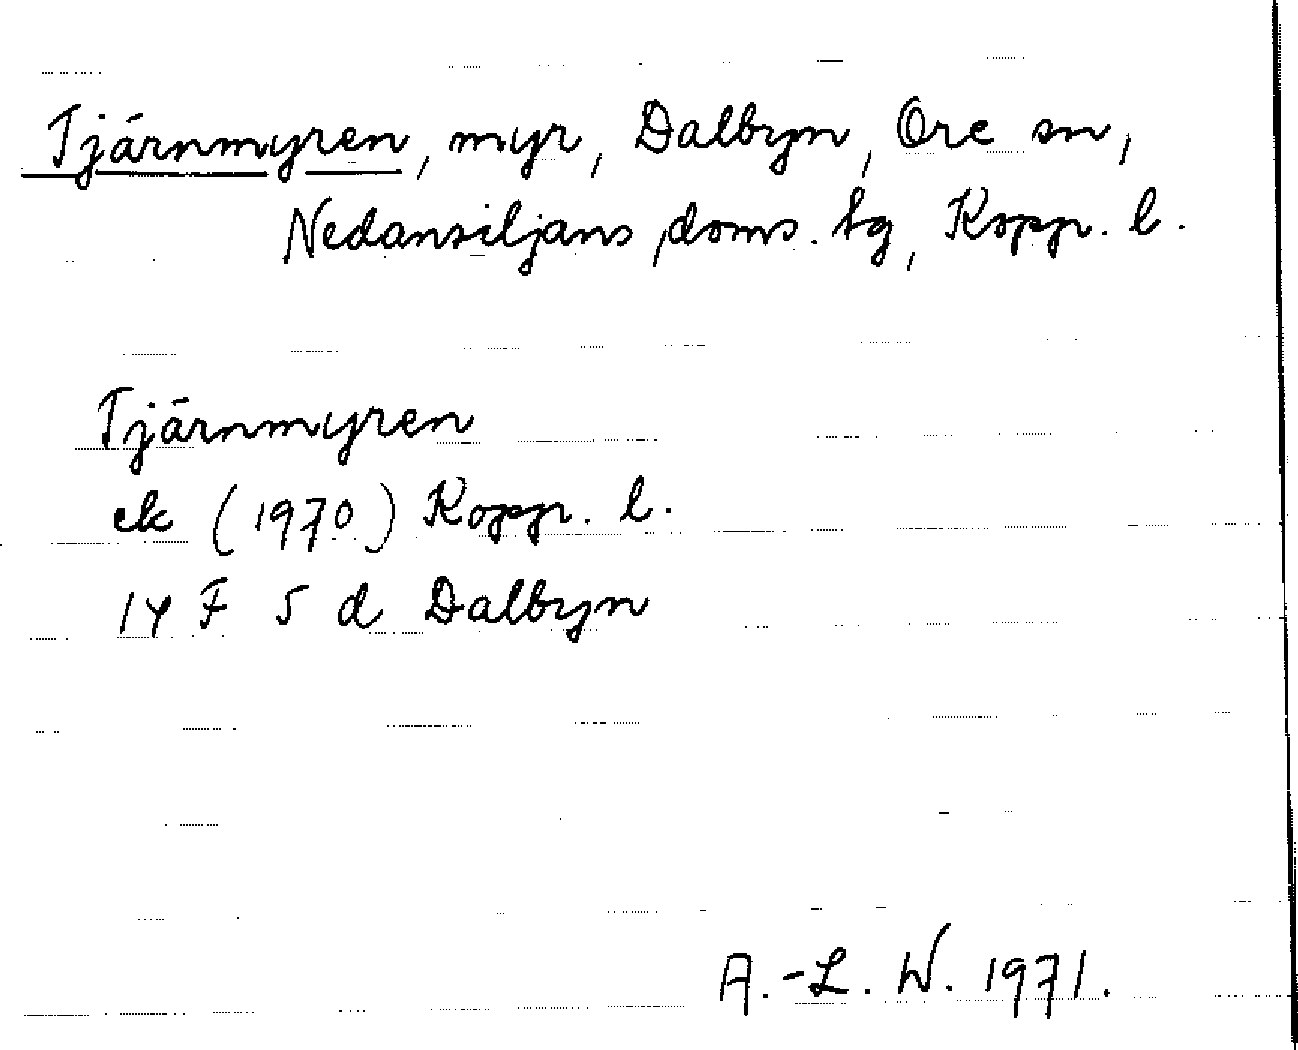 Tjärnmyren, myr, Dalbyn, Ore sn,
Nedansiljans doms. tg, Kopp. l.
Tjärnmyren
ek (1970) Kopp. l.
14 F 5 d Dalbyn
A.-L. W. 1971.